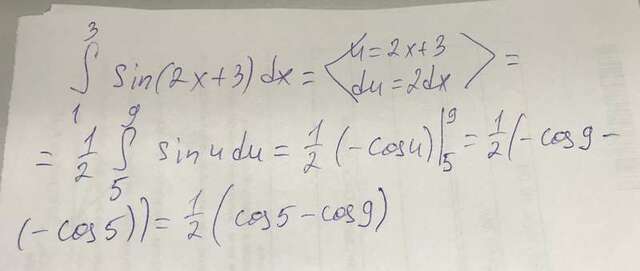 ∫₁³ sin(2x+3)dx = <u=2x+3
du=2dx> =
= 1/2 ∫₅⁹ sin u du = 1/2 (-cos u)|₅⁹ = 1/2 (-cos 9 -
(-cos 5)) = 1/2 (cos 5 - cos 9)